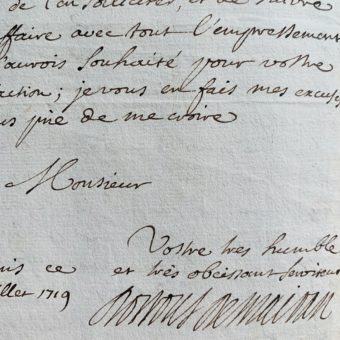 de l'en solliciter, et de suivre
ffaire avec tout l'empressement
j'aurois souhaité pour vostre
action; je vous en fais mes excuses
us prie de me croire
Monsieur
Vostre tres humble
is ce et très obeissant serviteur
illet 1719
Dortous de mairan